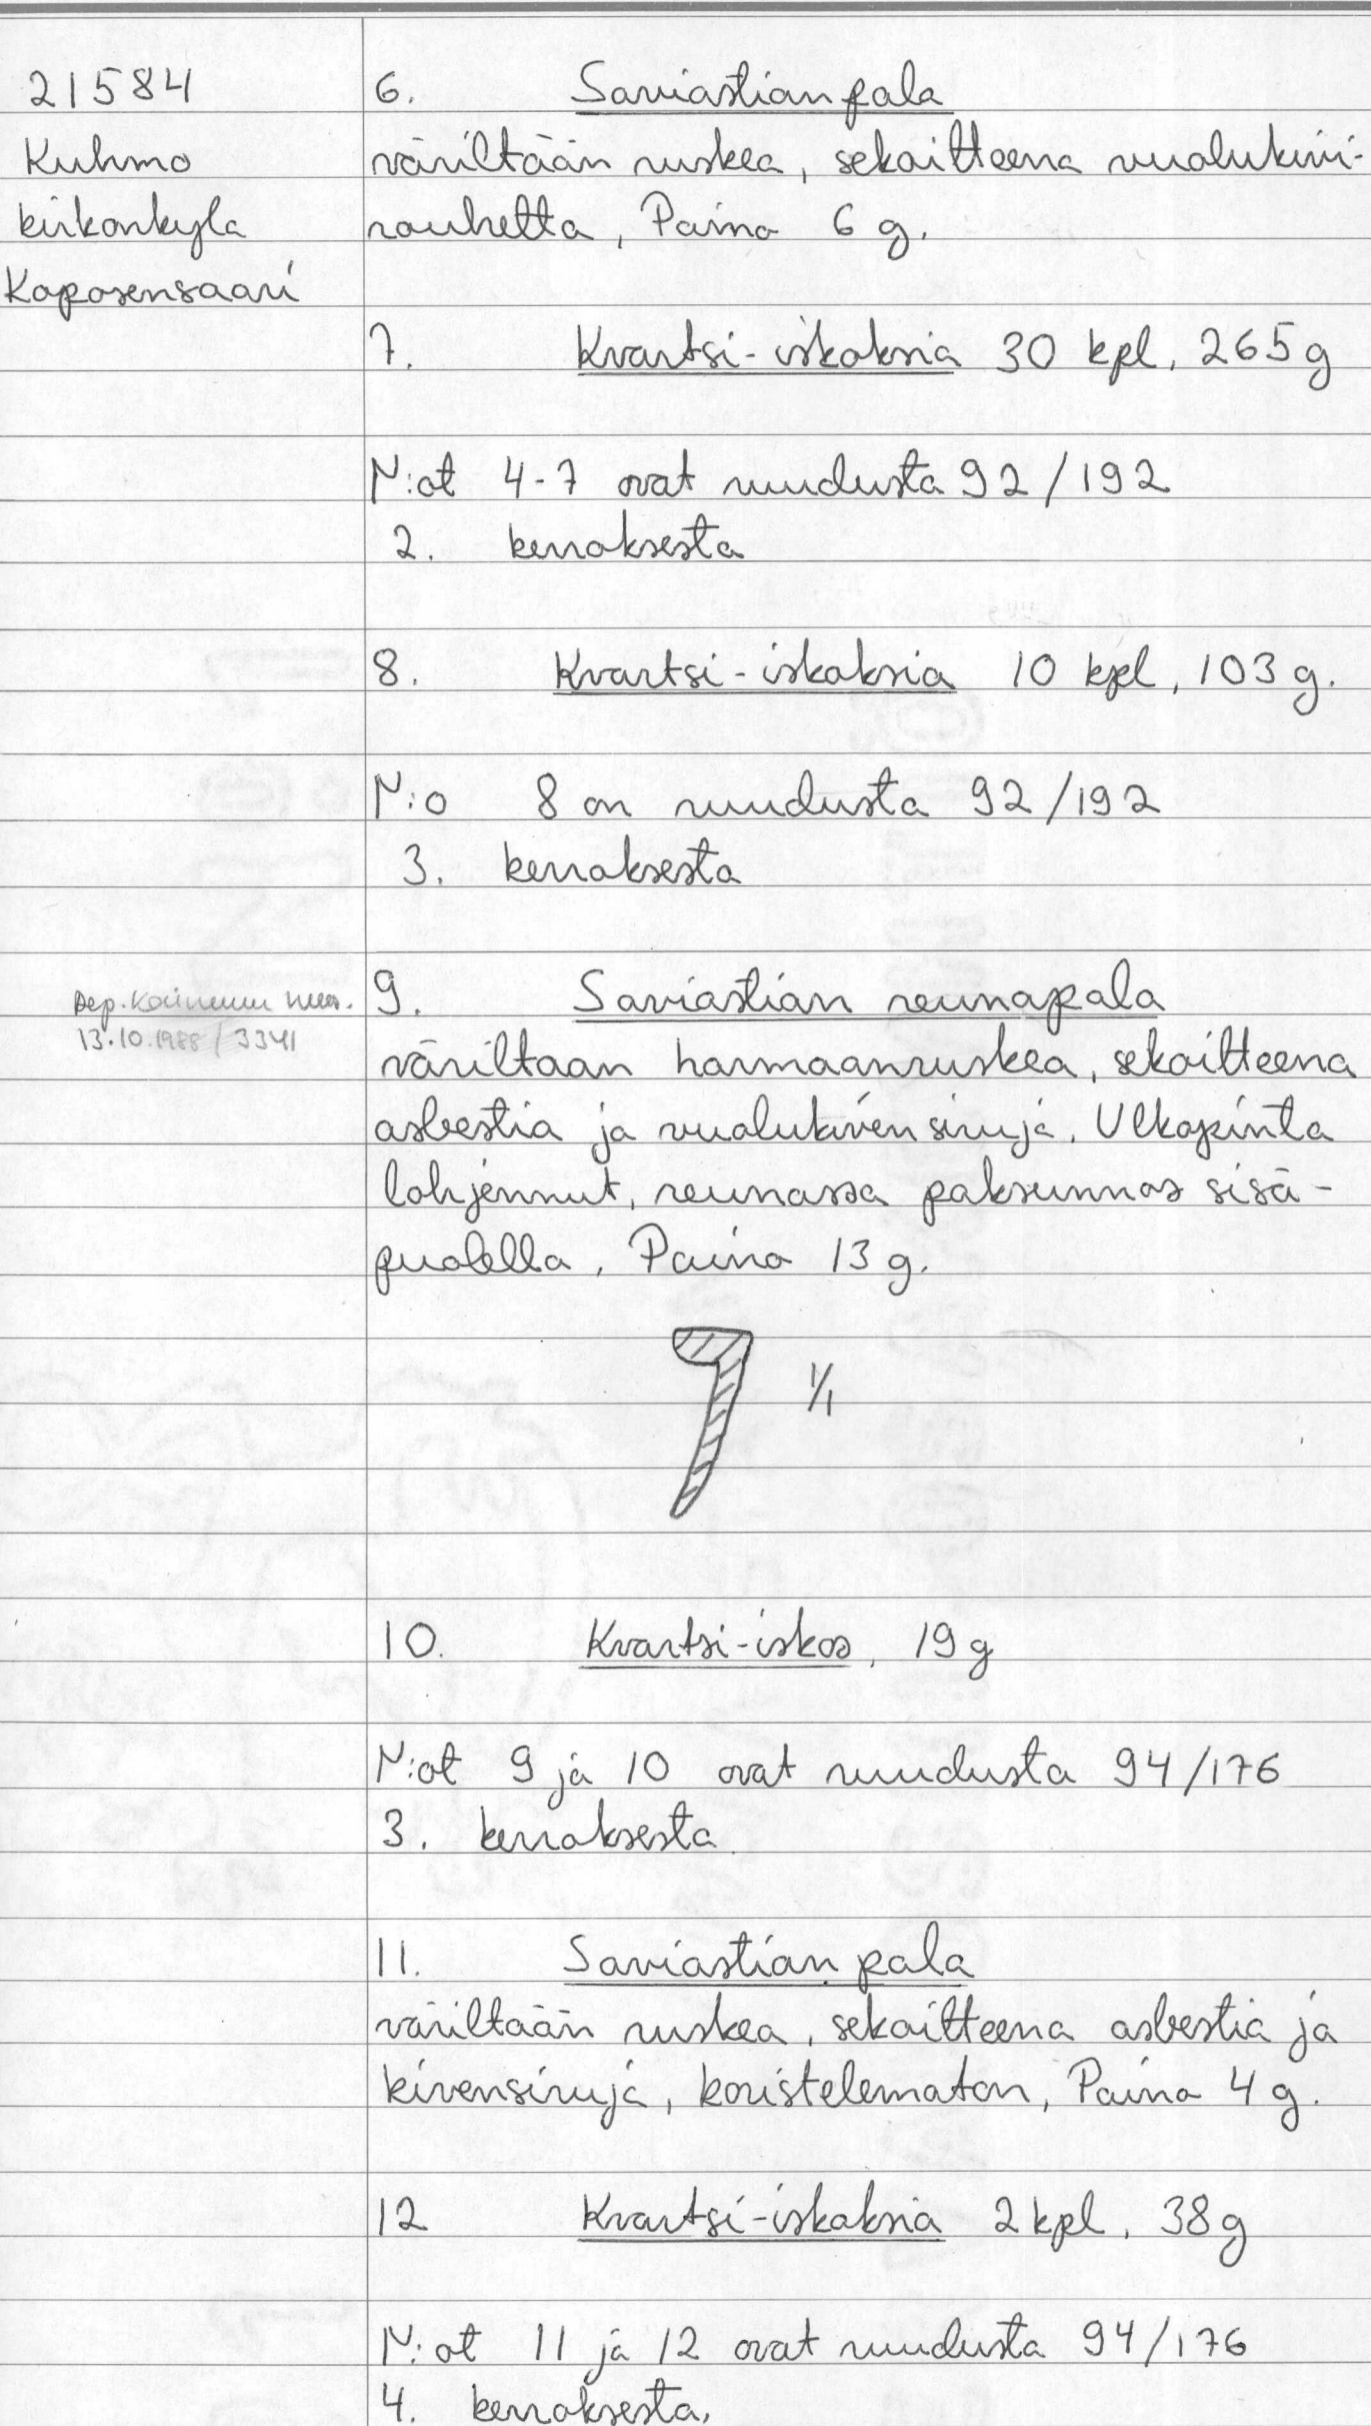 21584
Kuhmo
kirkonkylä
Koposensaari
6. Saviastian pala
väriltään ruskea, sekoitteena vuolukivi-
rouhetta, Paino 6 g.
7. Kvartsi-iskoksia 30 kpl, 265 g
N:ot 4-7 ovat ruudusta 92/192
2. kerroksesta
8. Kvartsi-iskoksia 10 kpl, 103 g.
N:o 8 on ruudusta 92/192
3. kerroksesta
Dep. Kainuun mus.
13.10.1988 / 3341
9. Saviastian reunapala
väriltaan harmaanruskea, sekoitteena
asbestia ja vuolukiven siruja. Ulkopinta
lohjennut, reunassa paksunnos sisä-
puolella, Paino 13 g.
1/1
10. Kvartsi-iskos, 19 g
N:ot 9 ja 10 ovat ruudusta 94/176
3. kerroksesta
11. Saviastian pala
väriltään ruskea, sekoitteena asbestia ja
kivensiruja, koristelematon, Paino 4 g.
12 Kvartsi-iskoksia 2 kpl, 38 g
N:ot 11 ja 12 ovat ruudusta 94/176
4. kerroksesta.